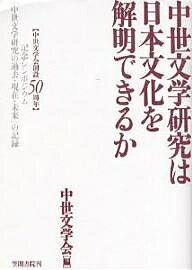 中世文学研究は
日本文化を
解明できるか
【中世文学会創設50周年】
記念シンポジウム
「中世文学研究の過去・現在・未来」の記録
中世文学会[編]
笠間書院刊